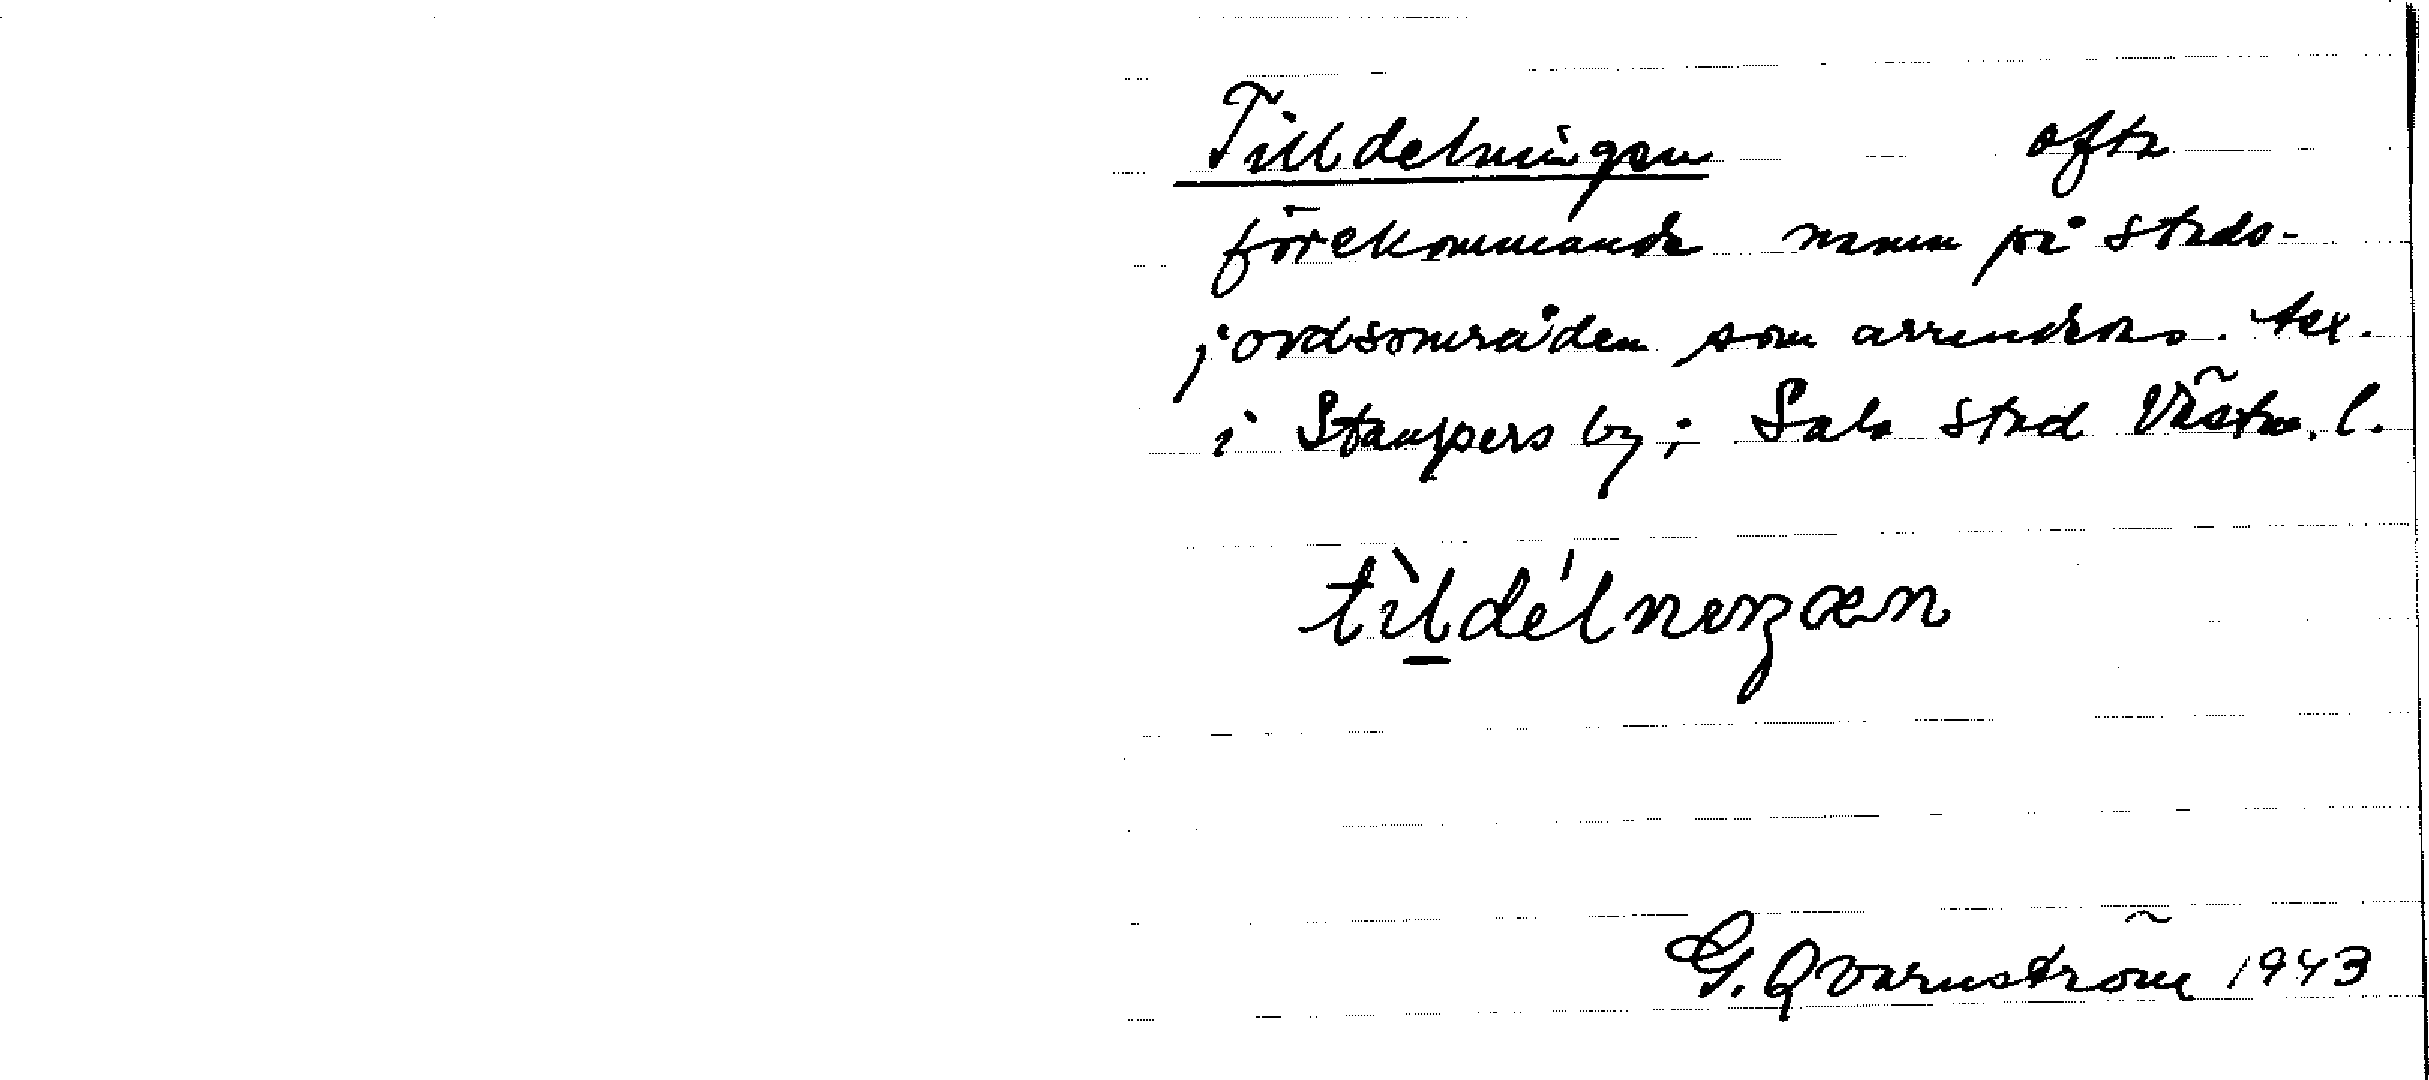 Tilldelningen ofta
förekommande namn på stads-
jordsområden som arrenderas. t.ex.
i Stampers by; Sala stad Västm. l.
tìldélniŋen
G. Qvarnström 1943